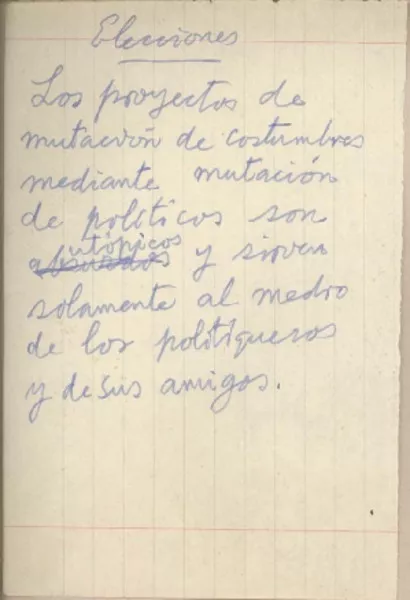 Elecciones
Los proyectos de
mutación de costumbres
mediante mutación
de políticos son
utópicos
absurdos y sirven
solamente al medro
de los politiqueros
y de sus amigos.